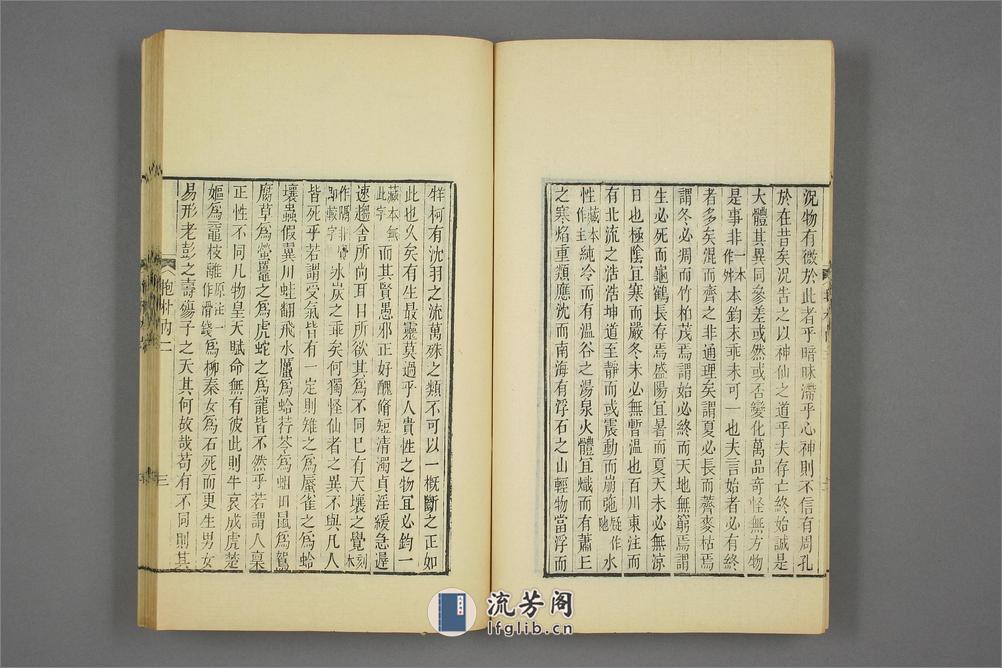 況物有微於此者乎暗昧滯乎心神則不信有周孔
於在昔矣況告之以神仙之道乎夫存亡終始誠是
大體其異同參差或然或否變化萬品奇怪無方物
是事非一本作殊本鈞末乖未可一也夫言始者必有終
者多矣混而齊之非通理矣謂夏必長而薺麥枯焉
謂冬必凋而竹柏茂焉謂始必終而天地無窮焉謂
生必死而龜鶴長存焉盛陽宜暑而夏天未必無涼
日也極陰宜寒而嚴冬未必無暫溫也百川東注而
有北流之浩浩坤道至靜而或震動而崩弛疑作阤水
性藏本作主純冷而有溫谷之湯泉火體宜熾而有蕭丘
之寒焰重類應沈而南海有浮石之山輕物當浮而
牂柯有沈羽之流萬殊之類不可以一概斷之正如
此也久矣有生最靈莫過乎人貴性之物宜必鈞一
藏本無此字而其賢愚邪正好醜脩短清濁貞淫緩急遲
速趨舍所尚耳目所欲其爲不同已有天壤之覺刻本
作隔非覺即較字冰炭之乖矣何獨怪仙者之異不與凡人
皆死乎若謂受氣皆有一定則雉之爲蜃雀之爲蛤
壤蟲假翼川蛙翻飛水蠣爲蛤荇苓爲蛆田鼠爲鴽
腐草爲螢鼉之爲虎蛇之爲龍皆不然乎若謂人稟
正性不同凡物皇天賦命無有彼此則牛哀成虎楚
嫗爲黿枝離原注一作滑錢爲柳秦女爲石死而更生男女
易形老彭之壽殤子之夭其何故哉苟有不同則其
抱朴內二
三
流芳阁
lfglib.cn